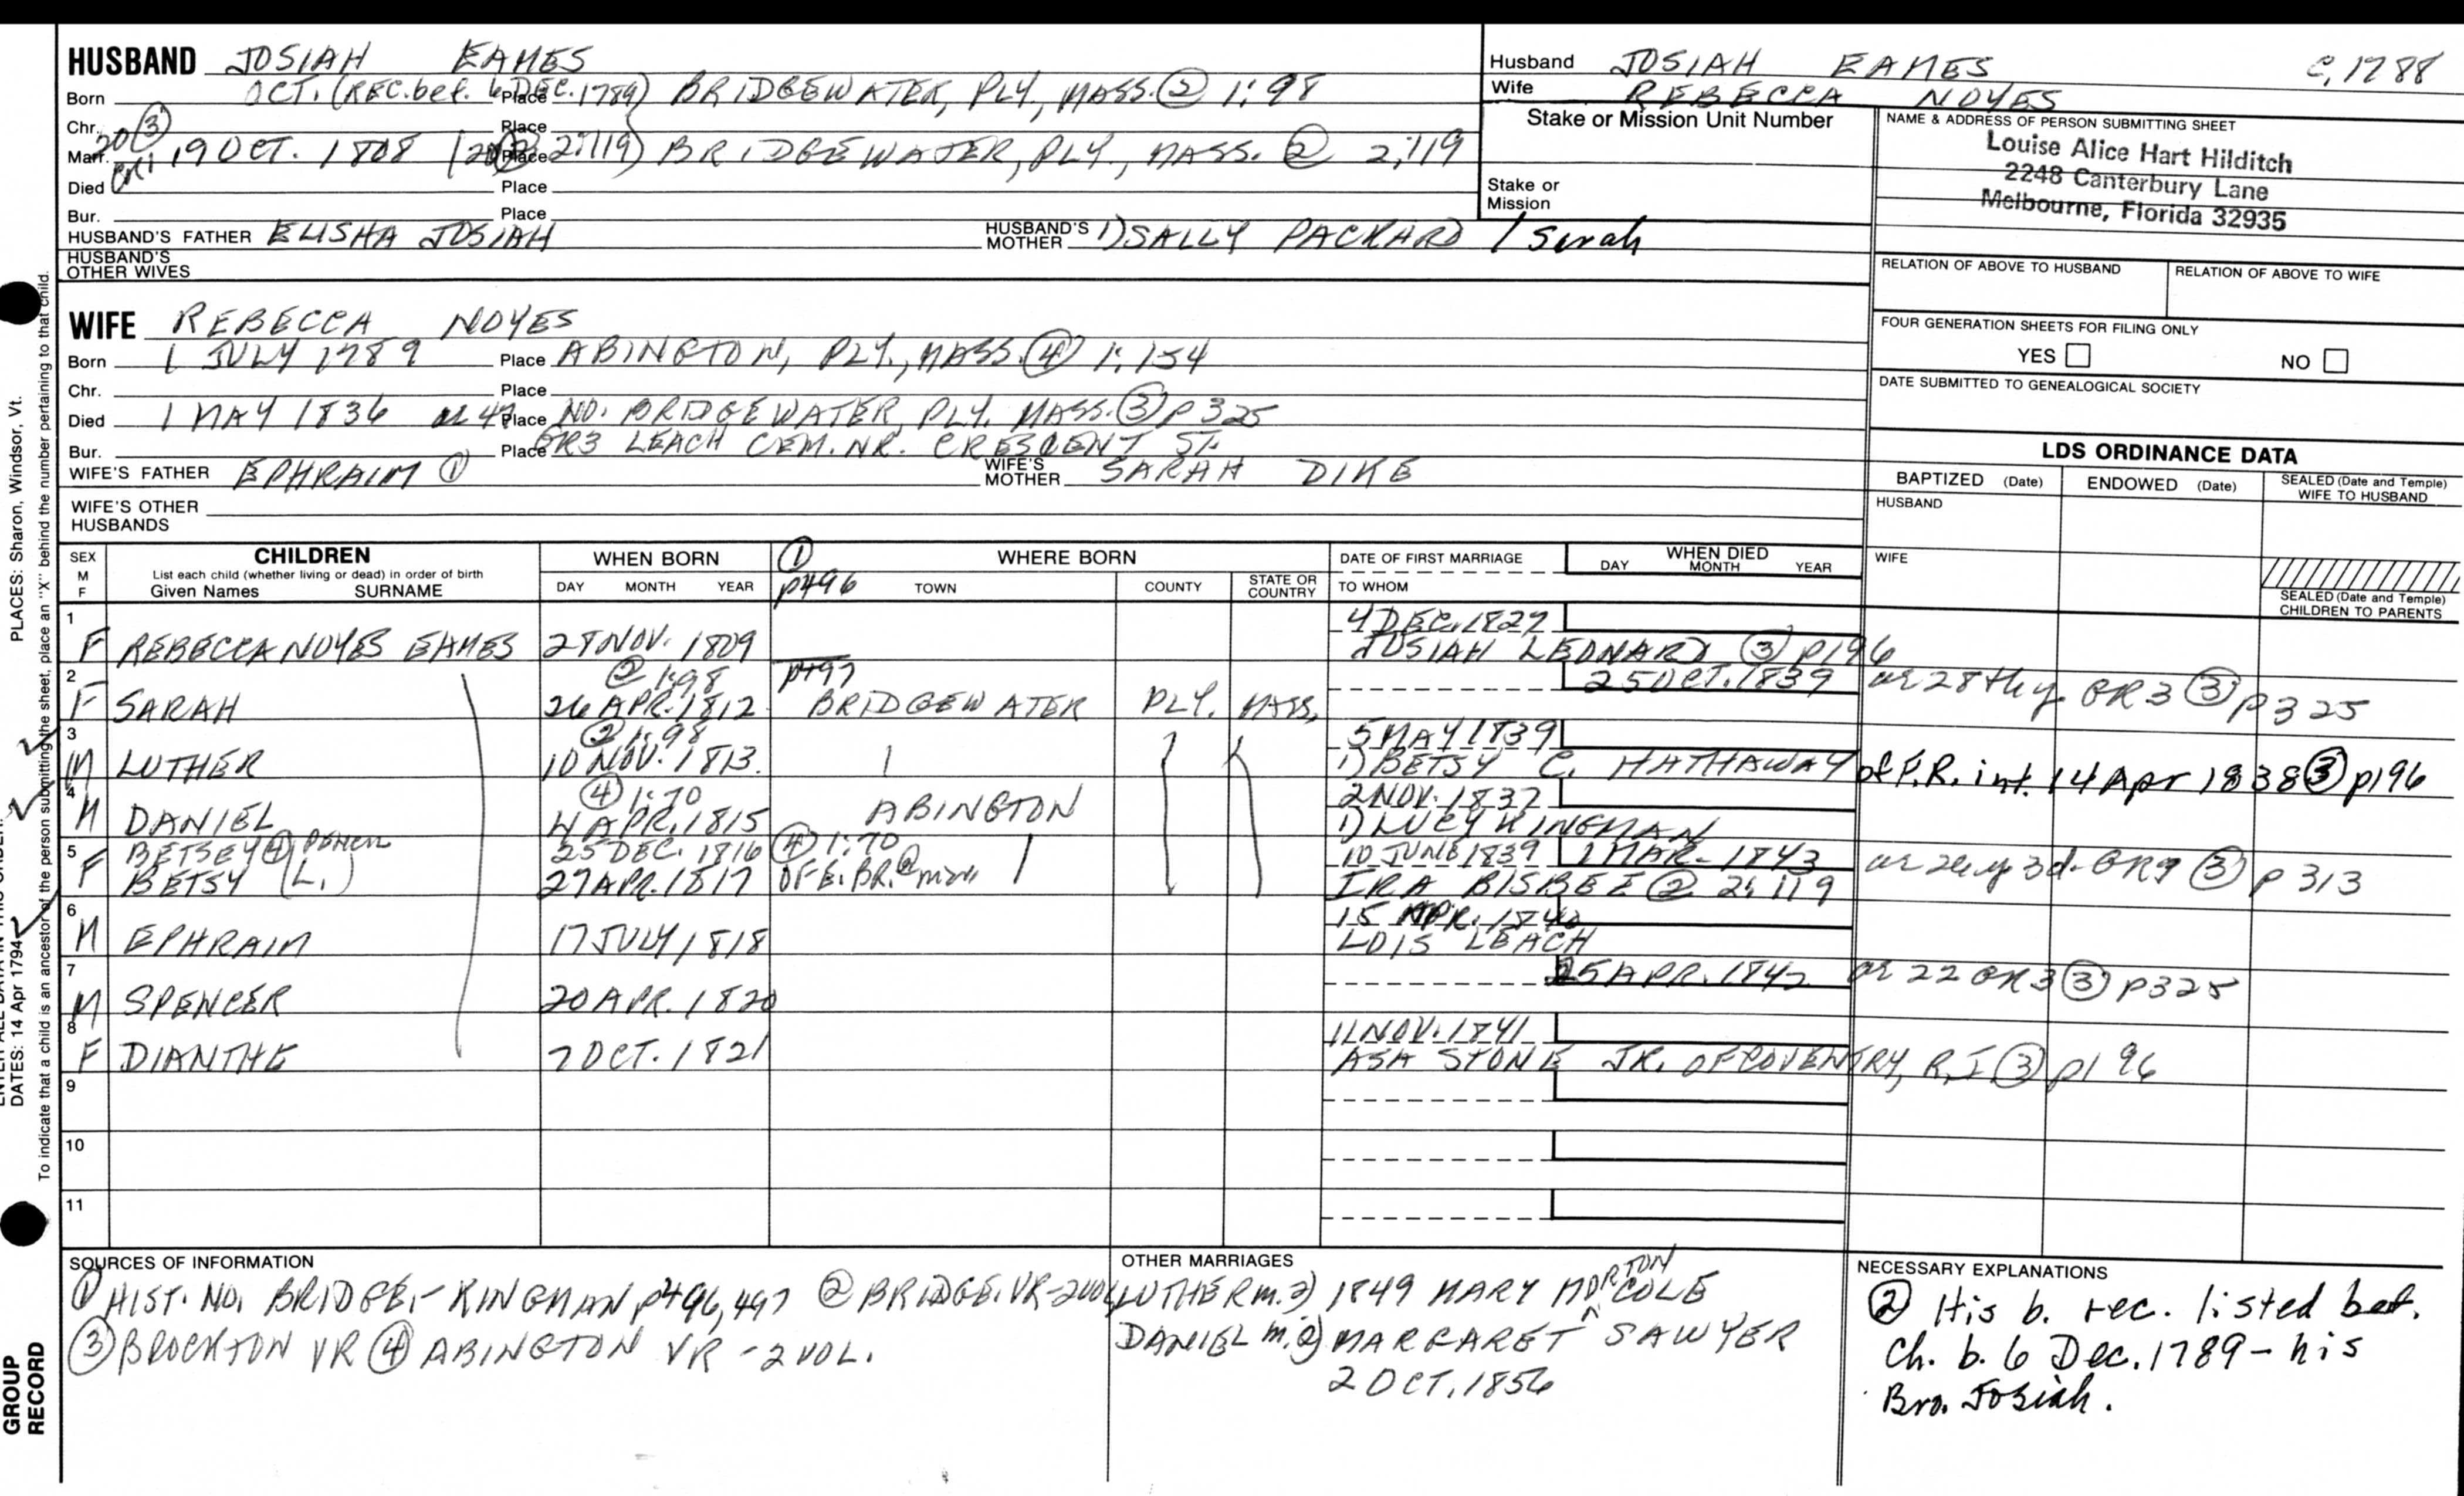 HUSBAND JOSIAH EAMES
Born OCT. (REC. bef. 6 DEC. 1789) Place BRIDGEWATER, PLY., MASS. ② 1:98
Chr. Place
20 ③
Marr. 19 OCT. 1808 Place 2:119) BRIDGEWATER, PLY., MASS. ② 2:119
Died Place
Bur. Place
HUSBAND'S FATHER ELISHA JOSIAH HUSBAND'S MOTHER 1) SALLY PACKARD / Sarah
HUSBAND'S OTHER WIVES
Husband JOSIAH EAMES C. 1788
Wife REBECCA NOYES
Stake or Mission Unit Number
Stake or Mission
NAME & ADDRESS OF PERSON SUBMITTING SHEET
Louise Alice Hart Hilditch
2248 Canterbury Lane
Melbourne, Florida 32935
RELATION OF ABOVE TO HUSBAND RELATION OF ABOVE TO WIFE
FOUR GENERATION SHEETS FOR FILING ONLY
YES NO
DATE SUBMITTED TO GENEALOGICAL SOCIETY
WIFE REBECCA NOYES
Born 1 JULY 1789 Place ABINGTON, PLY., MASS. ④ 1:154
Chr. Place
Died 1 MAY 1836 ae 47 Place NO. BRIDGEWATER, PLY. MASS. ③ p 325
Bur. Place GR3 LEACH CEM. NR. CRESCENT ST.
WIFE'S FATHER EPHRAIM ① WIFE'S MOTHER SARAH DIKE
WIFE'S OTHER HUSBANDS
LDS ORDINANCE DATA
BAPTIZED (Date) ENDOWED (Date) SEALED (Date and Temple) WIFE TO HUSBAND
HUSBAND
WIFE
SEALED (Date and Temple) CHILDREN TO PARENTS
SEX M F
CHILDREN
List each child (whether living or dead) in order of birth
Given Names SURNAME
WHEN BORN
DAY MONTH YEAR
① p496
WHERE BORN
TOWN COUNTY STATE OR COUNTRY
DATE OF FIRST MARRIAGE
TO WHOM
WHEN DIED
DAY MONTH YEAR
1 4 DEC. 1827
F REBECCA NOYES EAMES 28 NOV. 1809 JOSIAH LEONARD ③ p196
2 ② 1:98 p497 25 OCT. 1839 ae 28th y. GR3 ③ p325
F SARAH 26 APR. 1812 BRIDGEWATER PLY. MASS.
3 ② 1:98 5 MAY 1839
M LUTHER 10 NOV. 1813. 1) BETSY C. HATHAWAY of F.R. int. 14 Apr 1838 ③ p196
4 ④ 1:70 ABINGTON 2 NOV. 1837
M DANIEL 4 APR. 1815 1) LUCY KINGMAN
5 BETSEY ④ 25 DEC. 1816 ④ 1:70 10 JUNE 1839 1 MAR. 1843 ae 26 y 3 d. GR9 ③ p 313
F BETSY (L.) 27 APR. 1817 OF E. BR. ② IRA BISBEE ② 2:119
6 15 APR. 1840
M EPHRAIM 17 JULY 1818 LOIS LEACH
7 25 APR. 1842 ae 22 GR3 ③ p325
M SPENCER 20 APR. 1820
8 11 NOV. 1841
F DIANTHE 7 OCT. 1821 ASA STONE JR. OF COVENTRY, R.I ③ p196
9
10
11
SOURCES OF INFORMATION
① HIST. NO. BRIDGE. - KINGMAN p496, 497 ② BRIDGE. VR - 2 VOL
③ BROCKTON VR ④ ABINGTON VR - 2 VOL.
OTHER MARRIAGES
LUTHER m. 2) 1849 MARY MORTON COLE
DANIEL m. 2) MARGARET SAWYER
2 OCT. 1856
NECESSARY EXPLANATIONS
② His b. rec. listed bef.
ch. b. 6 Dec. 1789 - his
Bro. Josiah.
PLACES: Sharon, Windsor, Vt.
DATES: 14 Apr 1794
To indicate that a child is an ancestor of the person submitting the sheet, place an "X" behind the number pertaining to that child.
GROUP RECORD